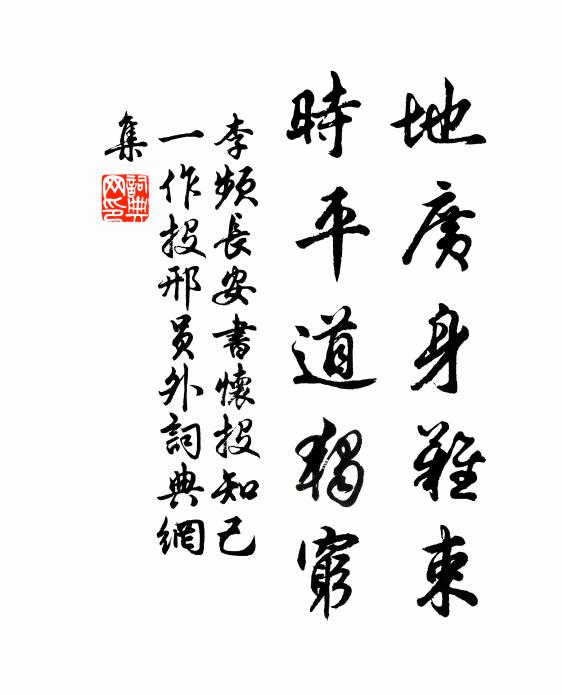 地廣身難束
時平道獨窮
李頻長安書懷投知己
一作投邢員外詞典網
集
詞典
网印